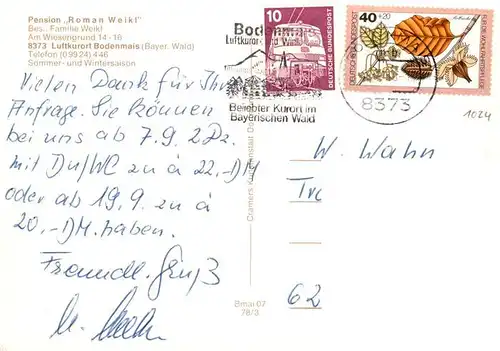 Pension „Roman Weikl"
Bes.: Familie Weikl
Am Wiesengrund 14 - 16
8373 Luftkurort Bodenmais (Bayer. Wald)
Telefon (0 99 24) 4 46
Sommer- und Wintersaison
Vielen Dank für Ihre
Anfrage. Sie können
bei uns ab 7.9. 2 Dz.
mit Du/WC zu á 22,- DM
oder ab 19.9. zu á
20,- DM haben.
Freundl. Gruß
Bodenmais
Luftkurort und
Beliebter Kurort im
Bayerischen Wald
10
DEUTSCHE BUNDESPOST
40+20
DEUTSCHE BUNDESPOST
8373
1024
W. Wahn
62
Cramers Kunstanstalt
Bmai 07
78/3